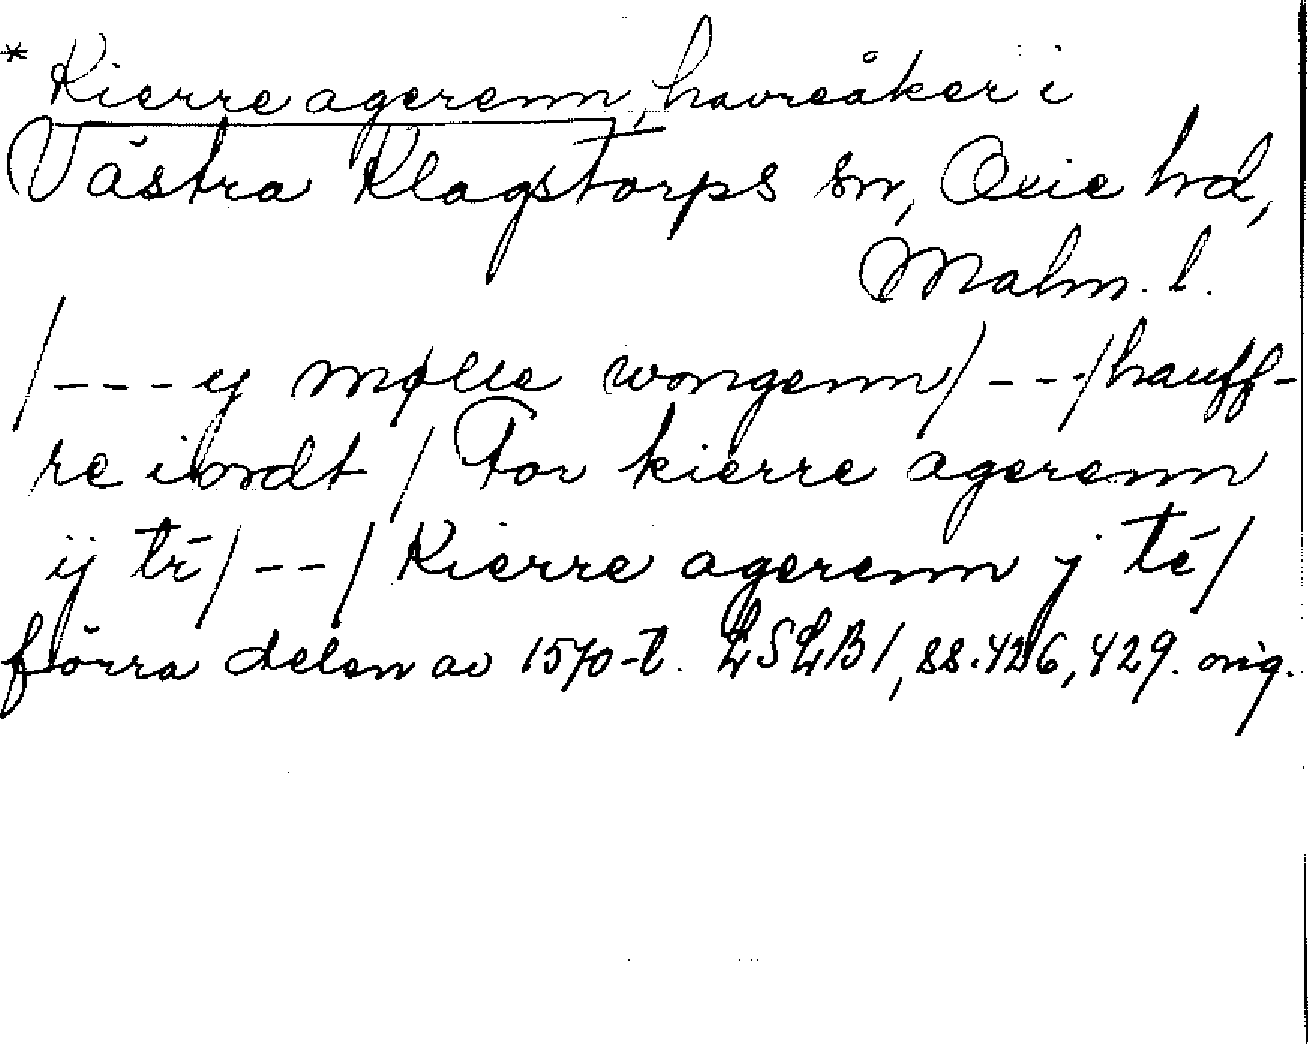 * Kierre agerenn, havreåker i
Västra Klagstorps sn, Oxie hd,
Malm. l.
/---y mølle wongenn/---/hauff-
re iordt / For kierre agerenn
ij tr̄/--/ Kierre agerenn j té/
förra delen av 1570-t. LSLB1, ss. 426, 429. orig.